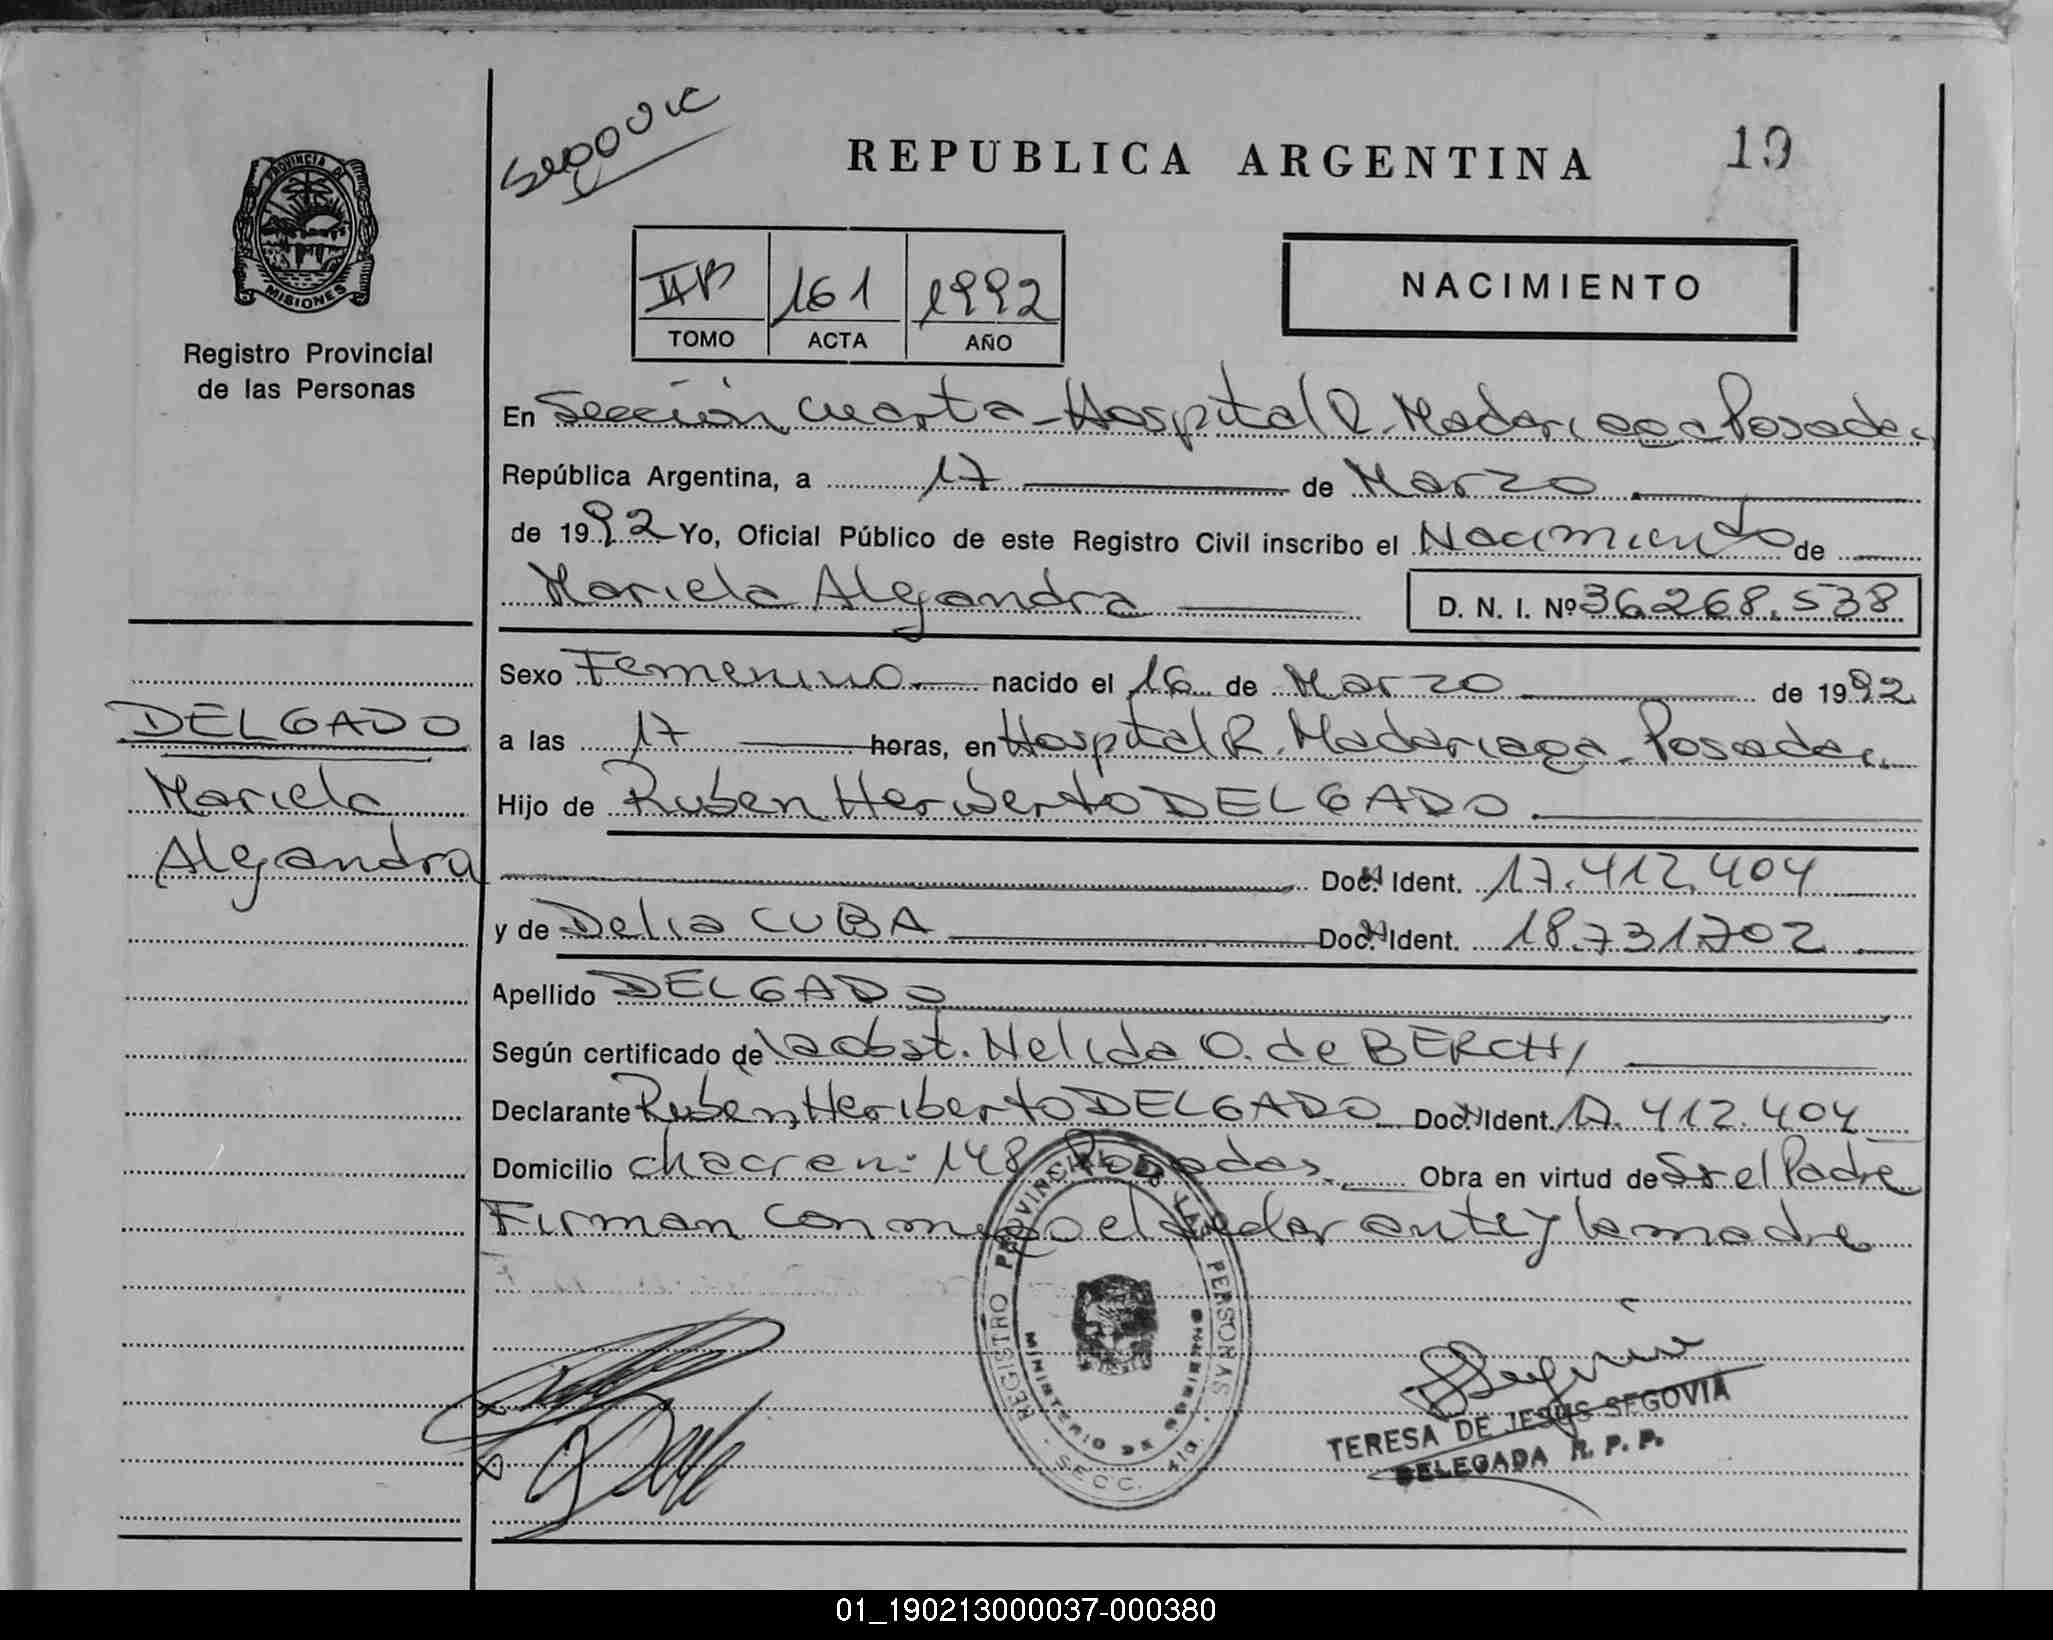 Segovia
REPUBLICA ARGENTINA
19
PROVINCIA DE
MISIONES
Registro Provincial
de las Personas
IIB 161 1992
TOMO ACTA AÑO
NACIMIENTO
En Sección Cuarta - Hospital R. Madariaga Posadas
República Argentina, a 17 de Marzo
de 1992 Yo, Oficial Público de este Registro Civil inscribo el Nacimiento de
Mariela Alejandra D. N. I. Nº 36.268.538
Sexo Femenino nacido el 16 de Marzo de 1992
a las 17 horas, en Hospital R. Madariaga - Posadas
Hijo de Ruben Heriberto DELGADO
Doc. Ident. 17.412.404
y de Delia CUBA Doc. Ident. 18.731702
Apellido DELGADO
Según certificado de la obst. Nelida O. de BERCHI
Declarante Ruben Heriberto DELGADO Doc. Ident. 17.412.404
Domicilio chacra n: 148 Posadas Obra en virtud de Sr el Padre
Firman conmigo el declarante y la madre
DELGADO
Mariela
Alejandra
REGISTRO PROVINCIAL DE LAS PERSONAS
MINISTERIO DE GOBIERNO
SECC. 4ta.
TERESA DE JESUS SEGOVIA
DELEGADA R. P. P.
01_190213000037-000380